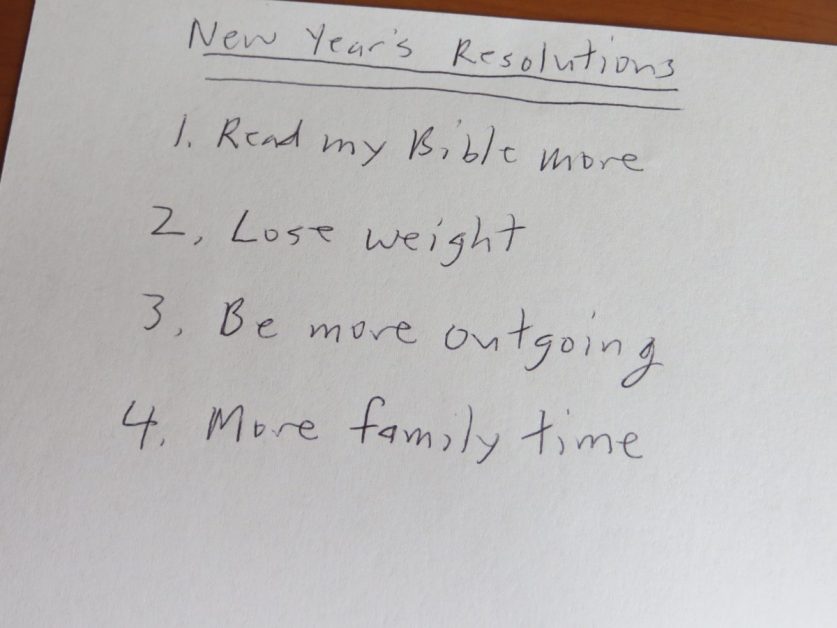 New Year's Resolutions
1. Read my Bible more
2, Lose weight
3, Be more outgoing
4. More family time